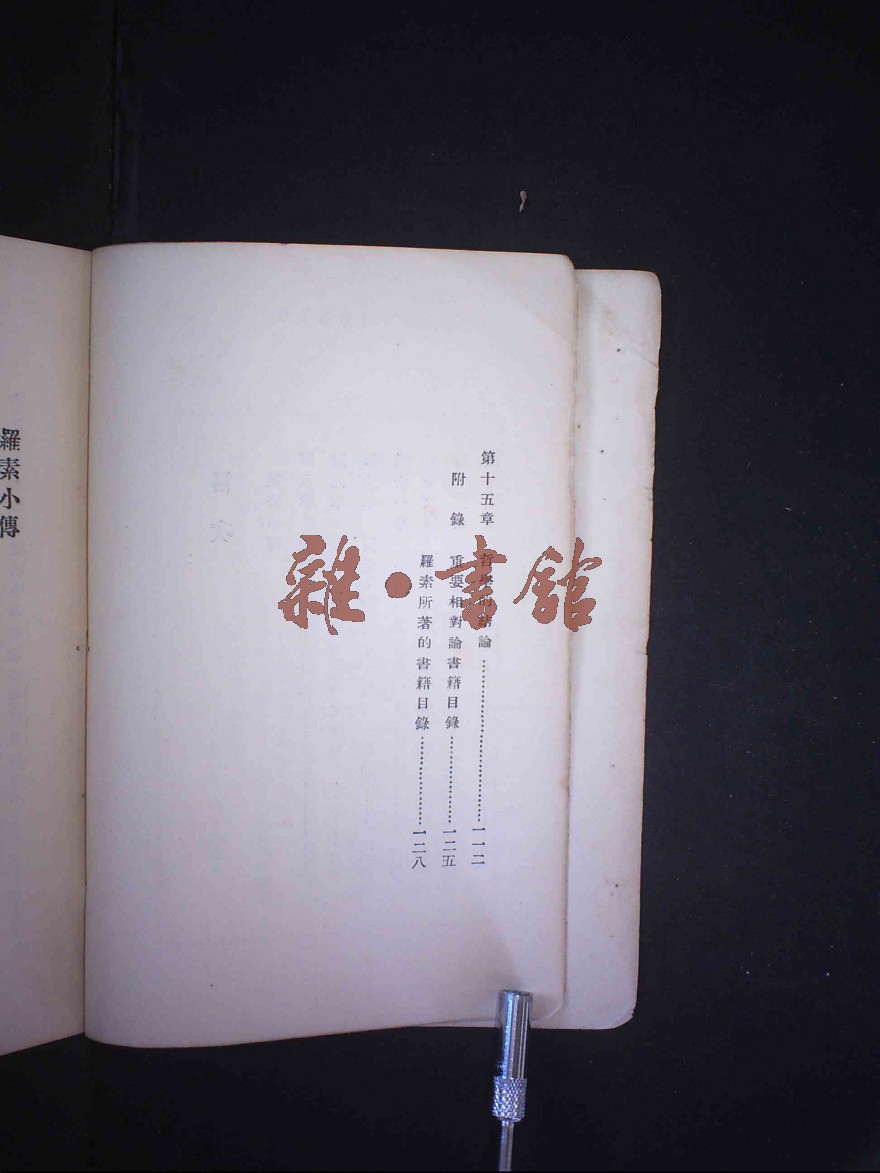 第十五章 哲學的結論…………………一一二
附錄 重要相對論書籍目錄…………一二五
羅素所著的書籍目錄…………一二八
羅素小傳
雜·書館